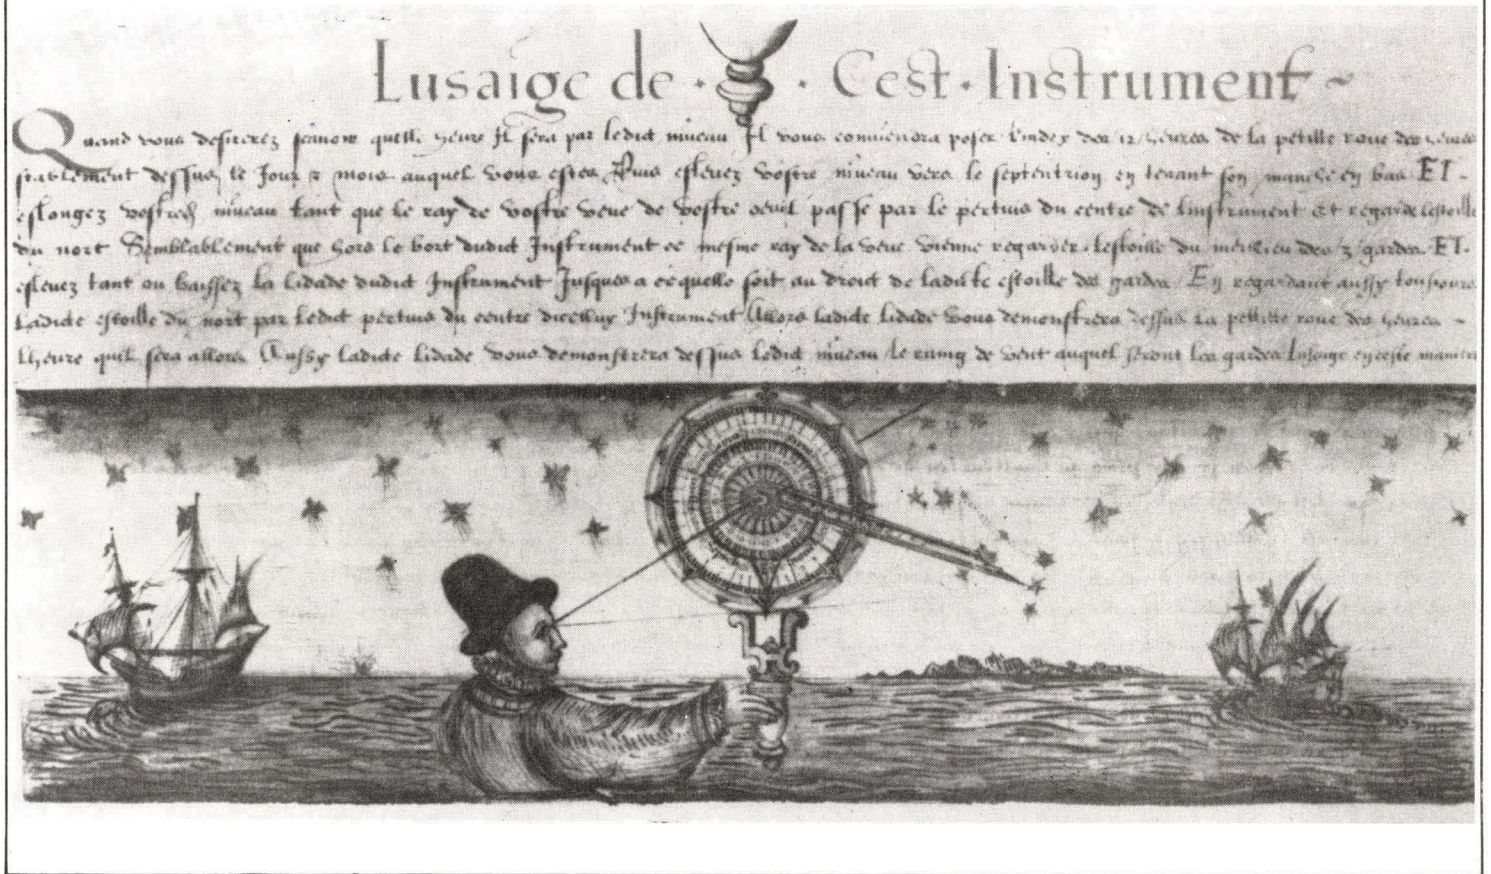 Lusaige de · · Cest · Instrument ~
Quand vous desirerez scauoir quelle heure Il sera par ledict niueau Il vous conuiendra poser lindex des 12 heures de la petitte roue des heures
stablement dessus le Jour & mois auquel vous estes Puis esleuez vostre niueau vers le septentrion en tenant son manche en bas ET ·
eslongez vostred niueau tant que le ray de vostre veue de vostre oeuil passe par le pertuis du centre de linstrument et regarde lestoille
du nort Semblablement que hors le bort dudict Instrument ce mesme ray de la veue vienne regarder lestoille du millieu des 3 gardes ET ·
esleuez tant ou baissez la lidade dudict Instrument Jusques a ce quelle soit au droict de ladicte estoille des gardes En regardant aussy tousjours
Ladicte estoille du nort par ledict pertuis du centre dicelluy Instrument Allors ladicte lidade vous demonstrera dessus la petitte roue des heures ~
Lheure quil sera allors Aussy ladicte lidade vous demonstrera dessus ledict niueau le rumg de vent auquel seront les gardes